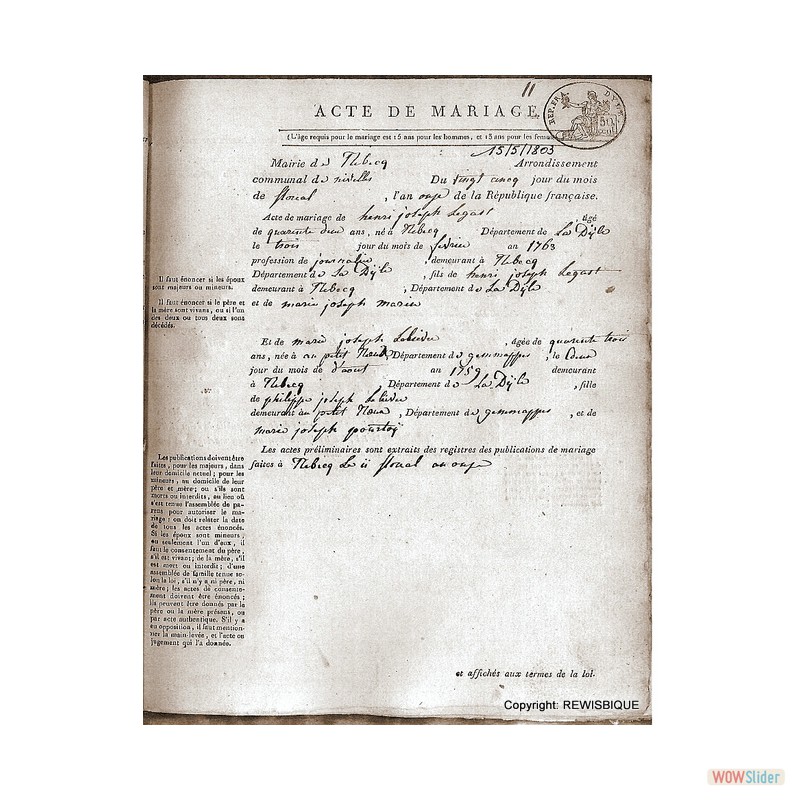 11
ACTE DE MARIAGE
REP. FRA
50
(L'âge requis pour le mariage est 15 ans pour les hommes, et 13 ans pour les femmes
15/5/1803
Mairie de Rebecq Arrondissement
communal de nivelles Du vingt cincq jour du mois
de floreal , l'an onze de la République française.
Acte de mariage de henri joseph Legast , âgé
de quarente deux ans, né à Rebecq Département de La Dÿle
le trois jour du mois de fevrier an 1763
profession de journalier , demeurant à Rebecq
Département de La Dÿle , fils de henri joseph Legast
demeurant à Rebecq , Département de La Dÿle
et de marie joseph
Il faut énoncer si les époux
sont majeurs ou mineurs.
Il faut énoncer si le père et
la mère sont vivans, ou si l'un
des deux ou tous deux sont
décédés.
Et de marie joseph , âgée de quarente trois
ans, née à au petit Département de gemmappes , le
jour du mois de d'aout an 1759 demeurant
à Rebecq , Département de La Dÿle , fille
de philippe joseph
demeurant au petit , Département de gemmappes , et de
marie joseph
Les actes préliminaires sont extraits des registres des publications de mariage
faites à Rebecq Le floreal an onze
Les publications doivent être
faites, pour les majeurs, dans
leur domicile actuel; pour les
mineurs, au domicile de leur
père et mère; ou s'ils sont
morts ou interdits, au lieu où
s'est tenue l'assemblée de pa-
rens pour autoriser le ma-
riage: on doit relater la date
de tous les actes énoncés.
Si les époux sont mineurs,
ou seulement l'un d'eux, il
faut le consentement du père,
s'il est vivant; de la mère, s'il
est mort ou interdit; d'une
assemblée de famille tenue se-
lon la loi, s'il n'y a ni père, ni
mère; les actes de consente-
ment doivent être énoncés;
ils peuvent être donnés par le
père ou la mère présens, ou
par acte authentique. S'il y a
eu opposition, il faut mention-
ner la main-levée, et l'acte ou
jugement qui l'a donnée.
et affichés aux termes de la loi.
Copyright: REWISBIQUE
WOWSlider